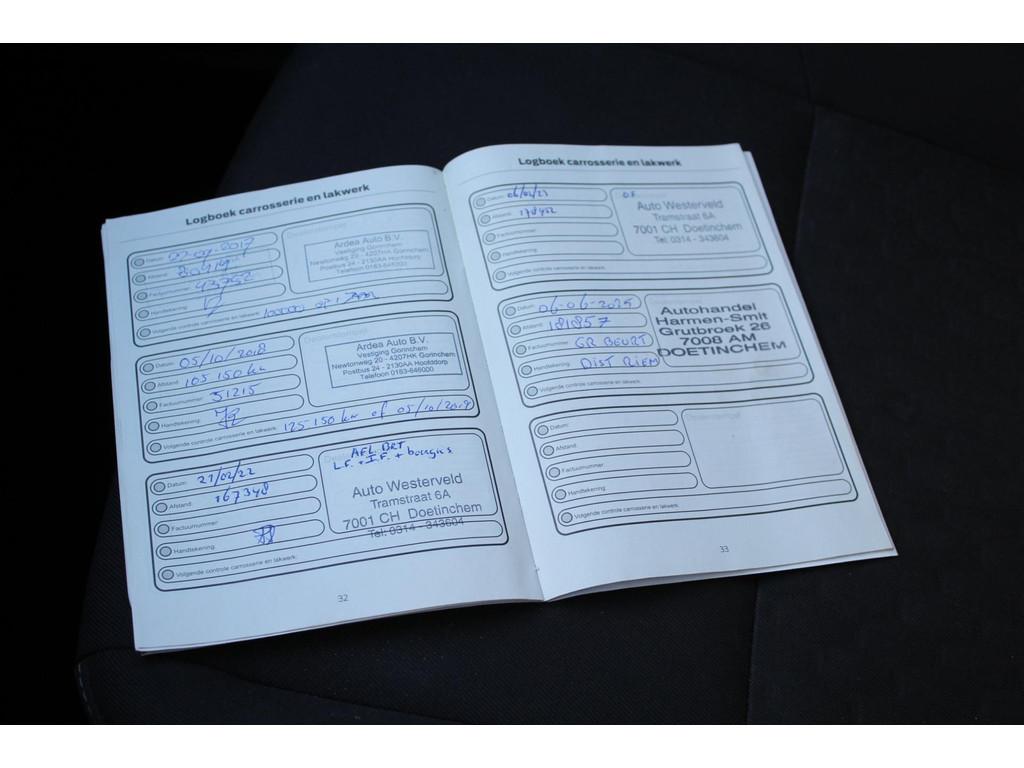 Logboek carrosserie en lakwerk
Datum: 27-07-2017
Afstand: 80414
Factuurnummer: 43752
Handtekening:
Volgende controle carrosserie en lakwerk: 100000 of 1 Jaar
Dealerstempel
Ardea Auto B.V.
Vestiging Gorinchem
Newtonweg 20 - 4207HK Gorinchem
Postbus 24 - 2130AA Hoofddorp
Telefoon 0183-646000
Datum: 05/10/2018
Afstand: 105 150 km
Factuurnummer: 51215
Handtekening:
Volgende controle carrosserie en lakwerk: 125-150 km of 05/10/2019
Dealerstempel
Ardea Auto B.V.
Vestiging Gorinchem
Newtonweg 20 - 4207HK Gorinchem
Postbus 24 - 2130AA Hoofddorp
Telefoon 0183-646000
Datum: 21/02/22
Afstand: 167348
Factuurnummer:
Handtekening:
Volgende controle carrosserie en lakwerk:
AFL. BRT
L.F. + I.F. + bougies
Auto Westerveld
Tramstraat 6A
7001 CH Doetinchem
Tel: 0314 - 343604
32
Logboek carrosserie en lakwerk
Datum: 06/02/23
Afstand: 178452
Factuurnummer:
Handtekening:
Volgende controle carrosserie en lakwerk:
OF
Auto Westerveld
Tramstraat 6A
7001 CH Doetinchem
Tel: 0314 - 343604
Datum: 06-06-2025
Afstand: 181857
Factuurnummer: GR BEURT
Handtekening: DIST RIEM
Volgende controle carrosserie en lakwerk:
Autohandel
Harmen-Smit
Grutbroek 26
7008 AM
DOETINCHEM
Datum:
Afstand:
Factuurnummer:
Handtekening:
Volgende controle carrosserie en lakwerk:
Dealerstempel
33